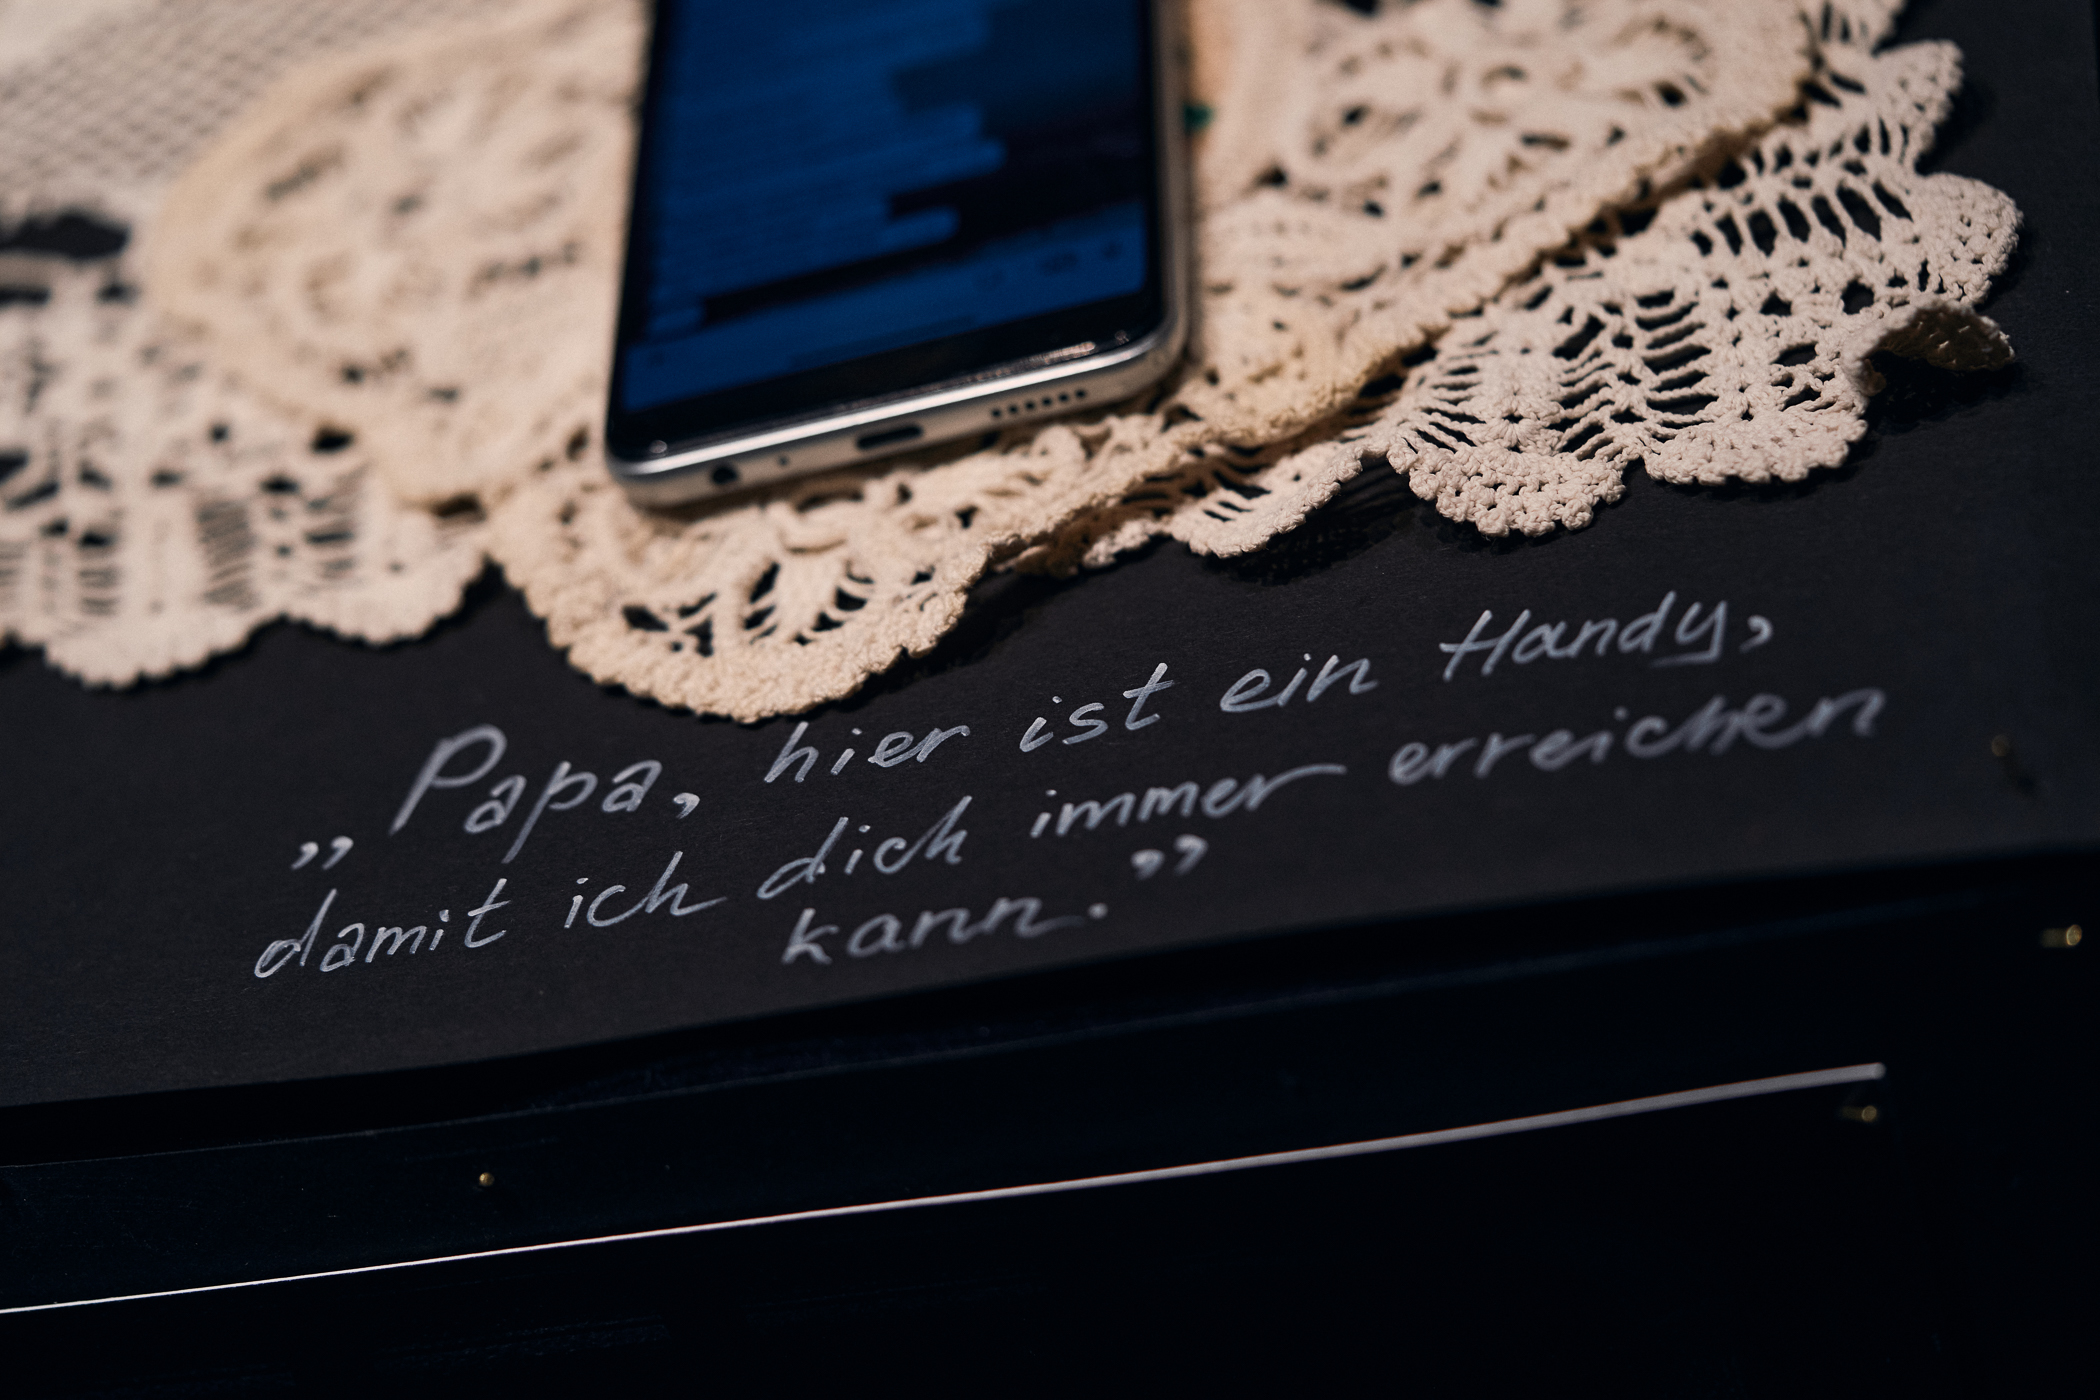 „Papa, hier ist ein Handy,
damit ich dich immer erreichen
kann.”